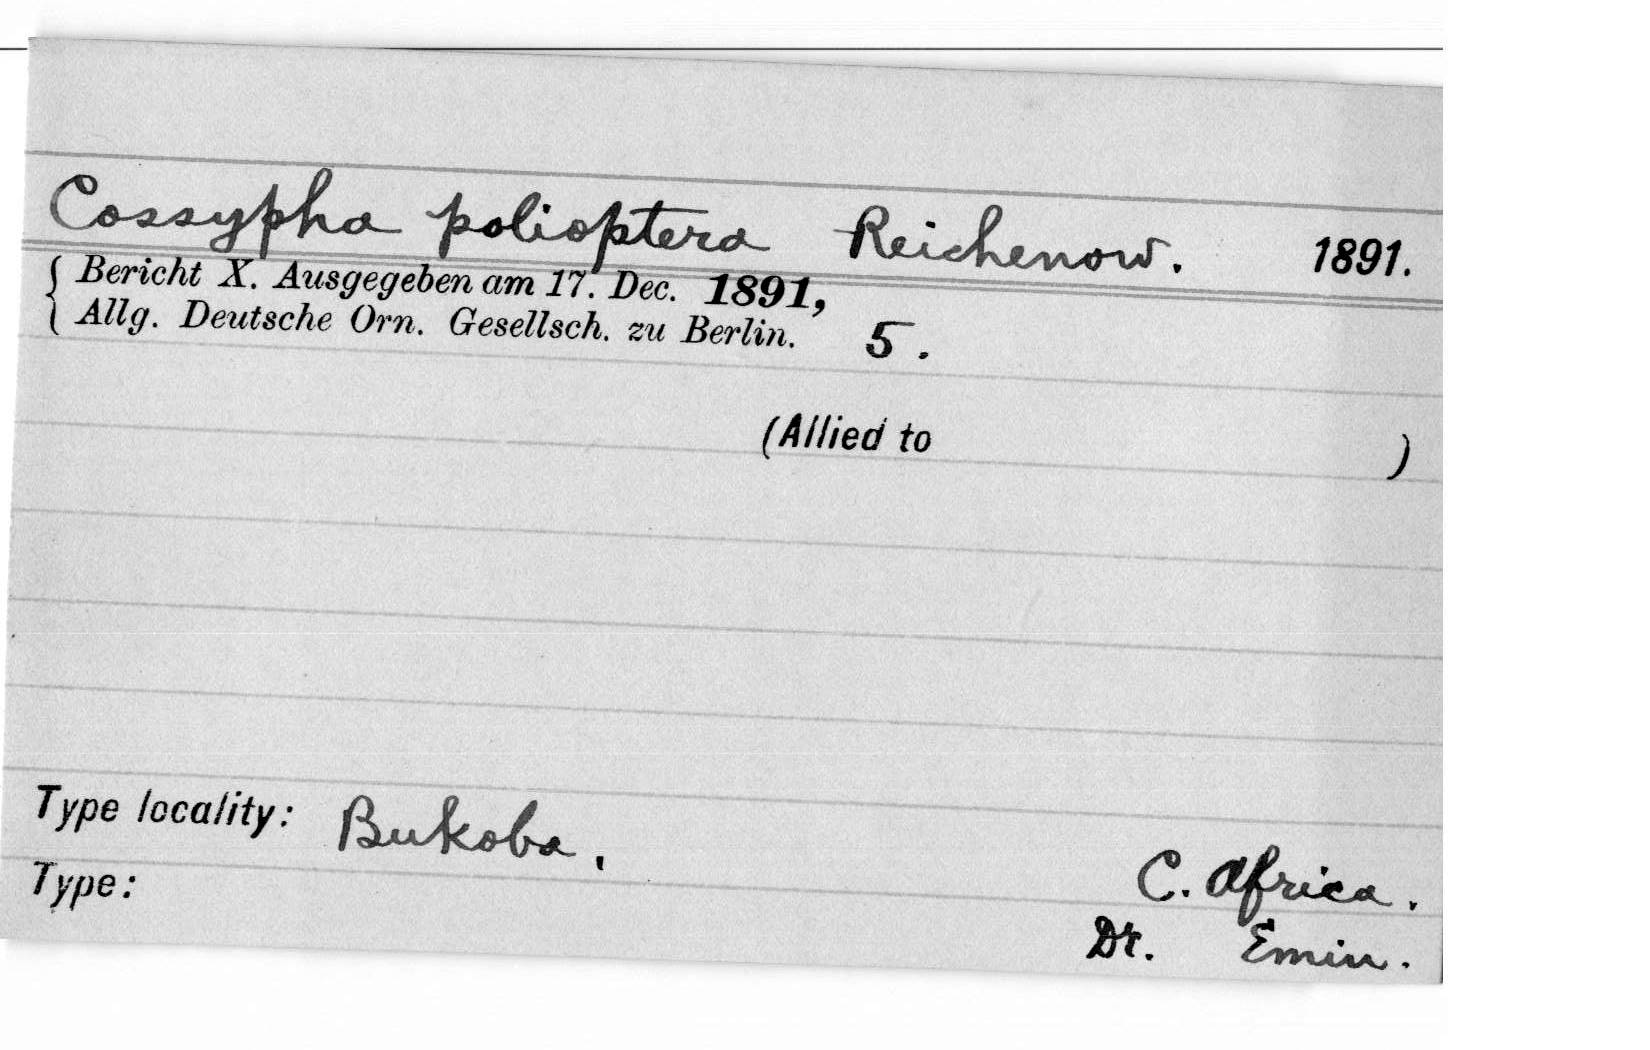 Cossypha polioptera Reichenow. 1891.
Bericht X. Ausgegeben am 17. Dec. 1891,
Allg. Deutsche Orn. Gesellsch. zu Berlin. 5.
(Allied to )
Type locality: Bukoba,
C. Africa.
Type:
Dr. Emin.